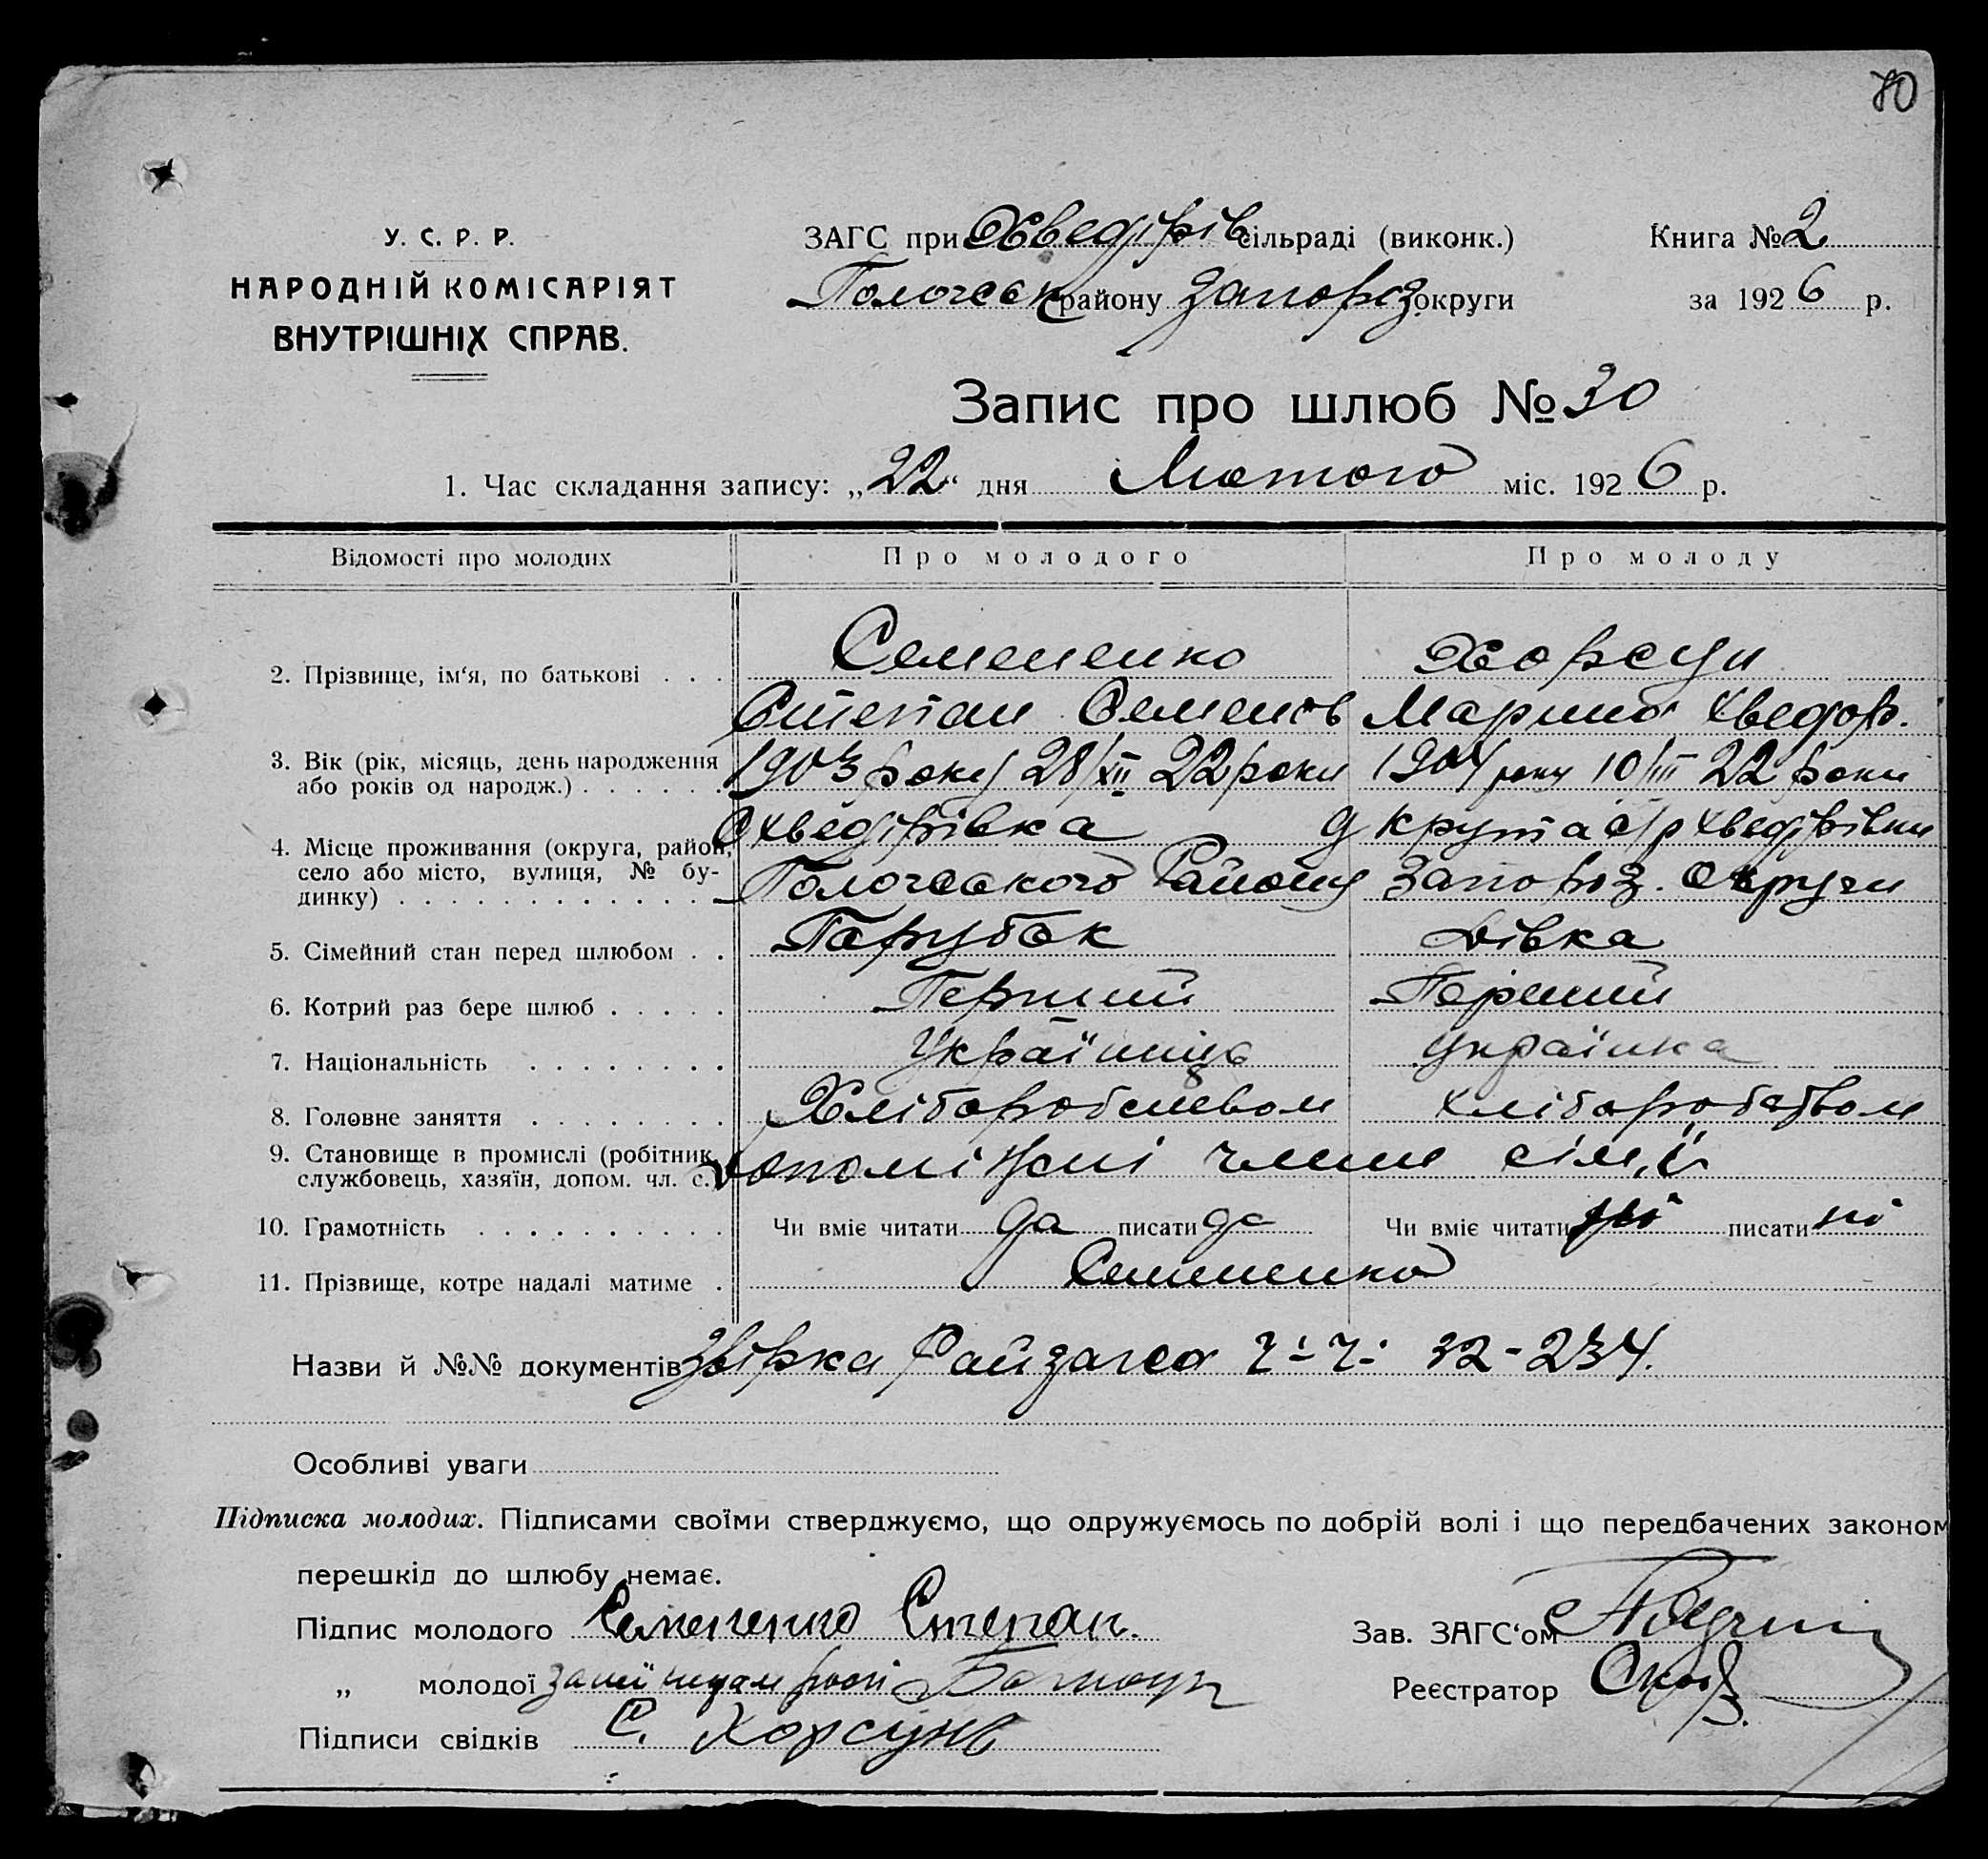 70
У. С. Р. Р.
НАРОДНІЙ КОМІСАРІЯТ
ВНУТРІШНІХ СПРАВ.
ЗАГС при Хведірів сільраді (виконк.)
Книга № 2
Пологовск району Запороз округи
за 1926 р.
Запис про шлюб № 30
1. Час складання запису: „22“ дня Лютого міс. 1926 р.
Відомості про молодих Про молодого Про молоду
2. Прізвище, ім‘я, по батькові . . . Семененко Хорсун
Степан Семенов Марина Хведор.
3. Вік (рік, місяць, день народження 1903 року 28/XII 22 роки 1904 року 10/III 22 роки
або років од народж.) . . . . . .
4. Місце проживання (округа, район, с Хведірівка д Крута с/р Хведірівки
село або місто, вулиця, № бу- Пологовского Району Запороз. Округи
динку) . . . . . . . . . . . . . .
5. Сімейний стан перед шлюбом . . Парубок Дівка
6. Котрий раз бере шлюб . . . . . Перший Перший
7. Національність . . . . . . . . Українць Українка
8. Головне заняття . . . . . . . . Хліборобством хліборобством
9. Становище в промислі (робітник, Допоміжні члени сім,ї
службовець, хазяїн, допом. чл. с.)
10. Грамотність . . . . . . . . . . Чи вміє читати да писати да Чи вміє читати ні писати ні
11. Прізвище, котре надалі матиме . Семененко
Назви й №№ документів Звірка Райзагса 32-234.
Особливі уваги
Підписка молодих. Підписами своїми стверджуємо, що одружуємось по добрій волі і що передбачених законом
перешкід до шлюбу немає.
Підпис молодого Семененко Степан.
Зав. ЗАГС‘ом
„ молодої
Реєстратор
Підписи свідків С. Хорсунь